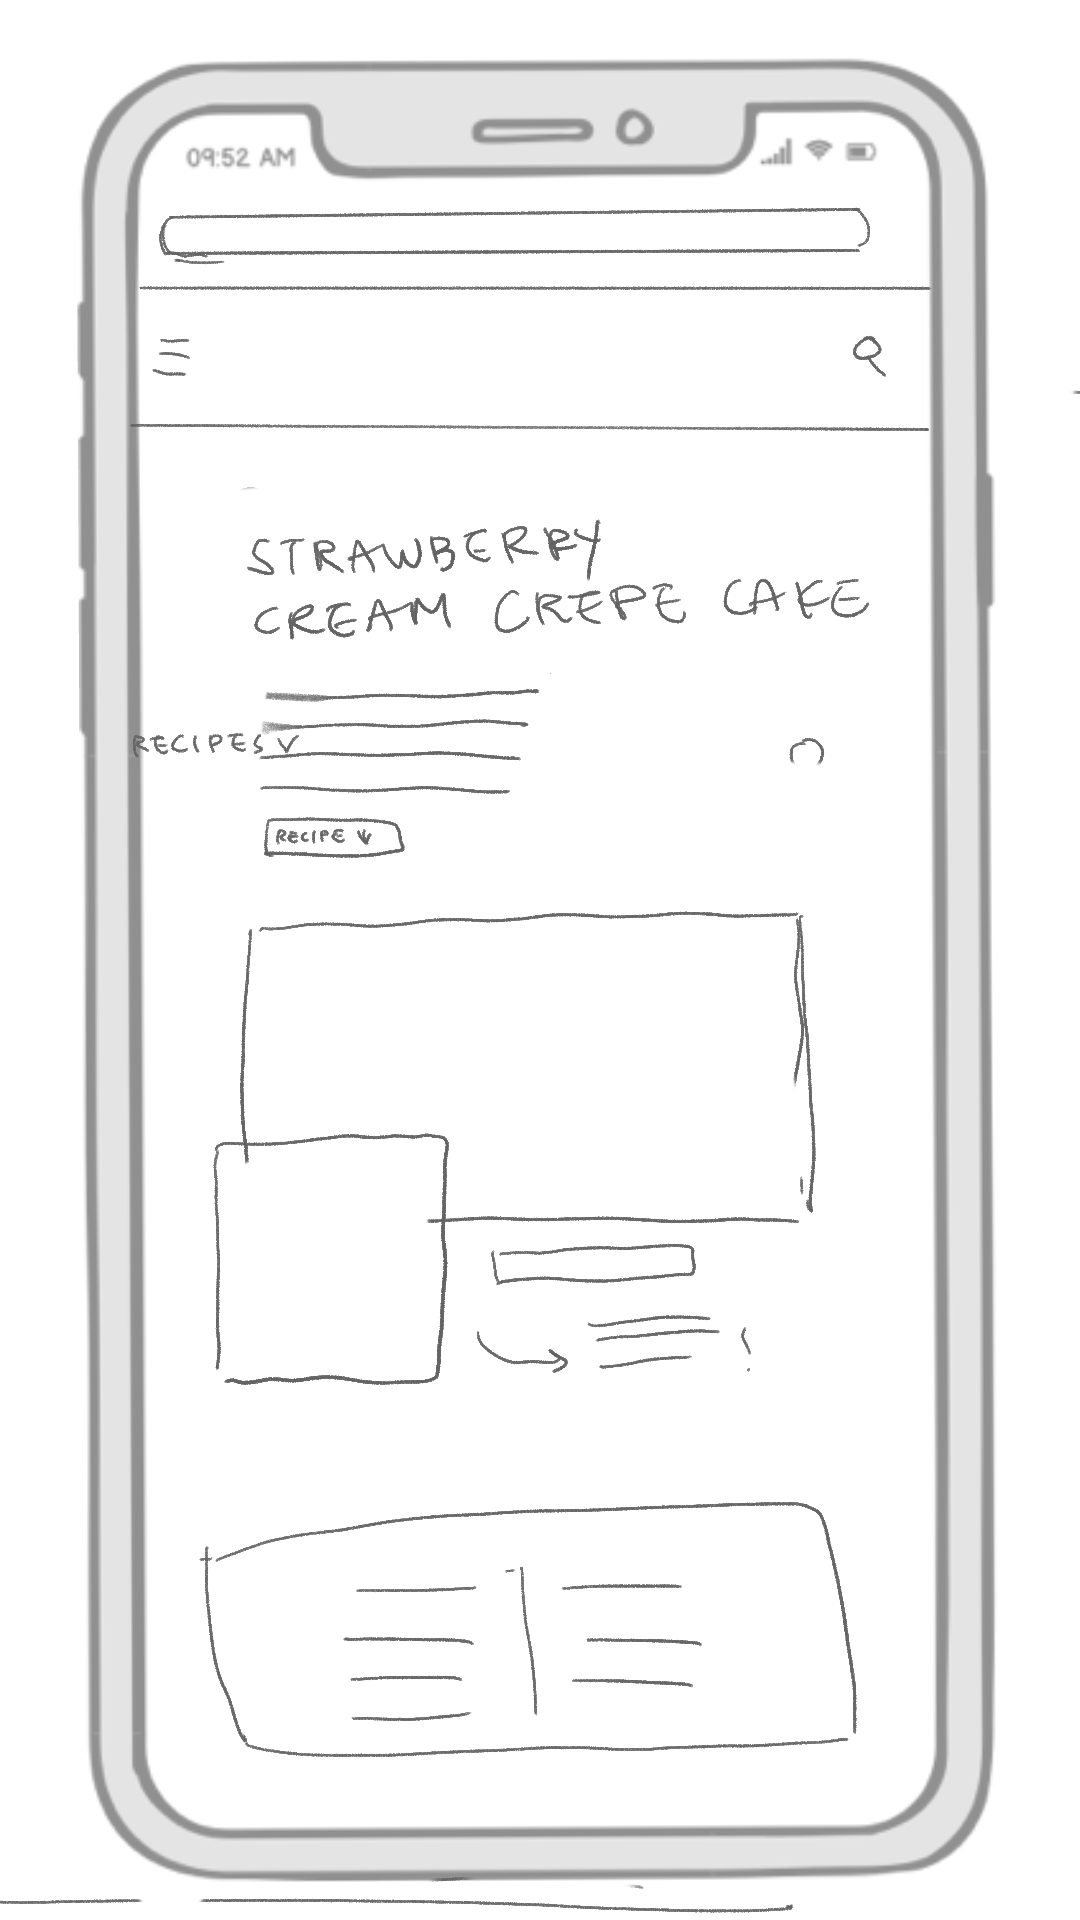 09:52 AM
STRAWBERRY
CREAM CREPE CAKE
RECIPES
RECIPE